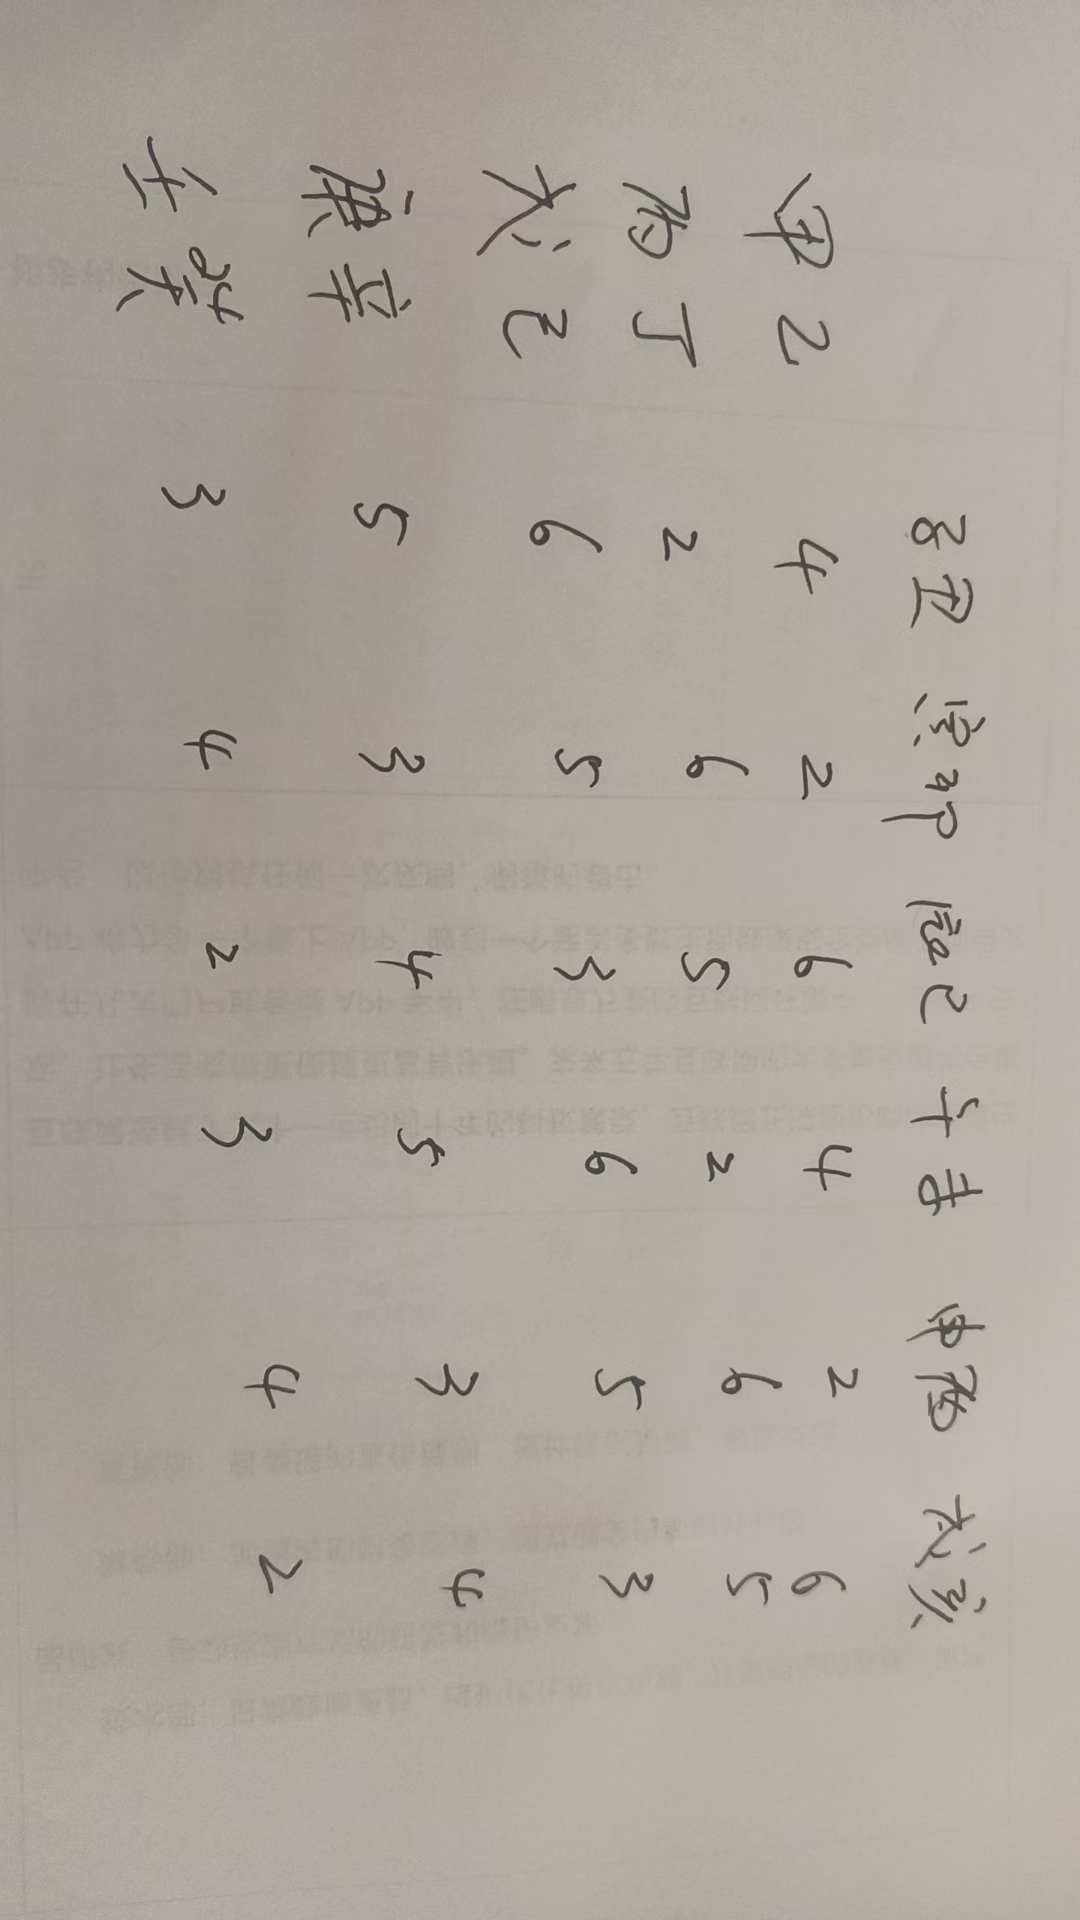 子丑 寅卯 辰巳 午未 申酉 戌亥
甲乙 4 2 6 4 2 6
丙丁 2 6 5 2 6 5
戊己 6 5 3 6 5 3
庚辛 5 3 4 5 3 4
壬癸 3 4 2 3 4 2